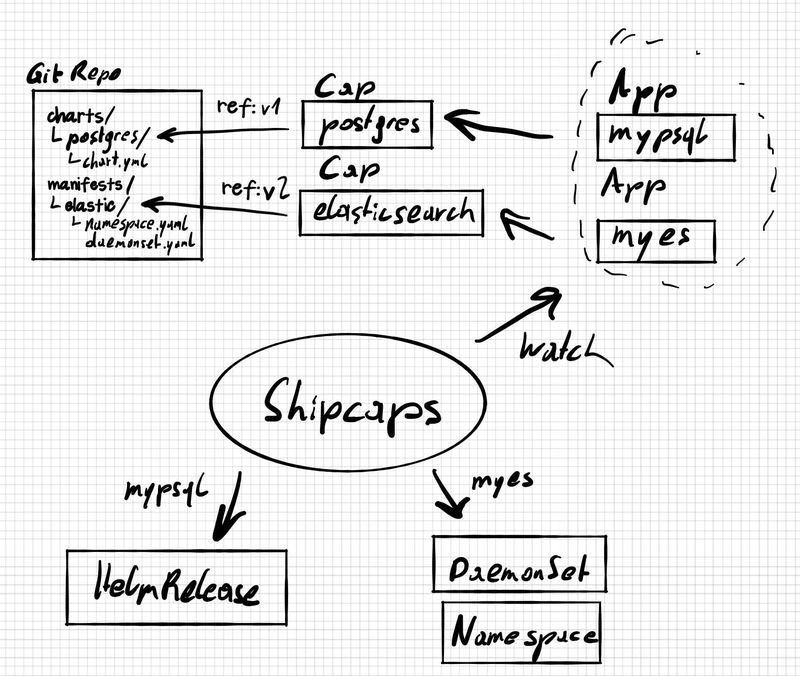 Git Repo
charts/
└ postgres/
└ chart.yml
manifests/
└ elastic/
└ namespace.yaml
daemonset.yaml
ref:v1
ref:v2
Cap
postgres
Cap
elasticsearch
App
mypsql
App
myes
watch
Shipcaps
mypsql
myes
HelmRelease
DaemonSet
Namespace